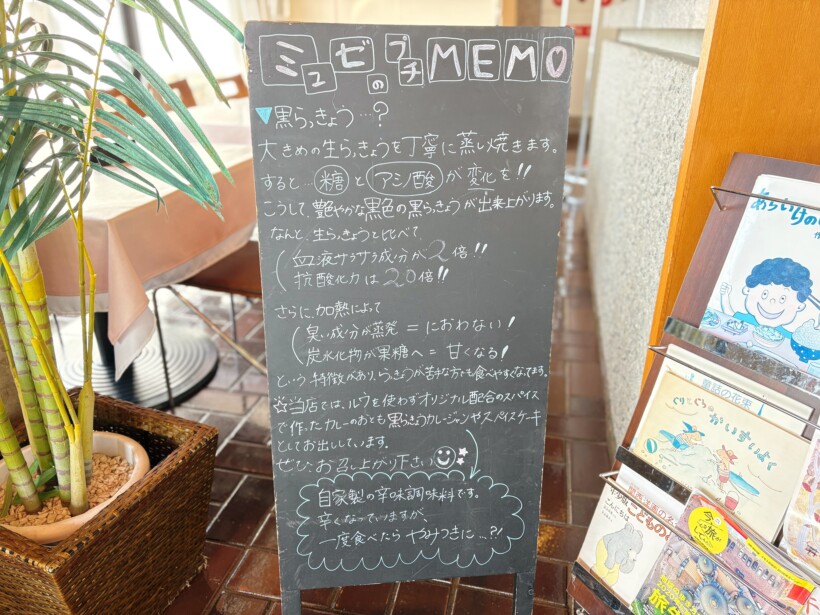 ミュゼのプチMEMO
▼黒らっきょう…?
大きめの生らっきょうを丁寧に蒸し焼きます。
すると…糖とアミノ酸が変化を!!
こうして、艶やかな黒色の黒らっきょうが出来上がります。
なんと、生らっきょうと比べて
血液サラサラ成分が2倍!!
抗酸化力は20倍!!
さらに、加熱によって
臭い成分が蒸発=におわない!
炭水化物が果糖へ=甘くなる!
という特徴があり、らっきょうが苦手な方でも食べやすくなってます。
☆当店では、ルウを使わずオリジナル配合のスパイス
で作ったカレーのおとも黒らっきょうカレージャンやスパイスケーキ
としてお出ししています。
ぜひ、お召し上がり下さい
自家製の辛味調味料です。
辛くなっていますが、
一度食べたらやみつきに…?!
あらいけの
ぐりとぐらの
かいすいよく
童話の花束
こんにちは
こどもの
今こそ
旅